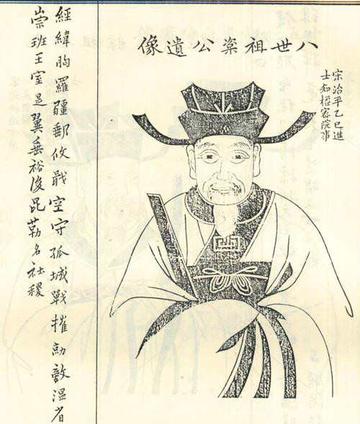 八世祖粢公遺像
宋治平乙巳進
士知樞密院事
經緯羅疆郵攸戢空守孤城戰摧勍敵溫省
崇班王室是翼垂裕後昆勒名社稷